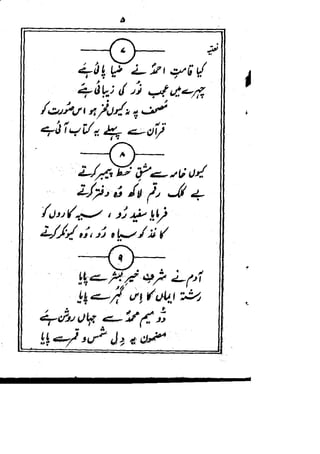 ۵
نعتیہ
۷
کیا قامتِ احمدؐ نے ضیا پائی ہے
چہرے میں عجب نور کی زیبائی ہے
مصحف پہ نہ کیوں فخر ہو اس صورت کو
قرآن سے پہلے یہ کتاب آئی ہے
۸
کیوں خامہ سے مشقِ خطِ پیمبر کرتے
بے کلک رقم لاکھ وہ دفتر کرتے
فرمایا سفید رُو، سیہ کاروں کو
کاغذ کو سیاہ رُو، وہ کیونکر کرتے
۹
آدم نے شرف خیرِ بشر سے پایا
رشتہ ایماں کا اس گہر سے پایا
دو میم محمدؐ سے جہاں روشن ہے
مضمون یہ دل شمس و قمر سے پایا